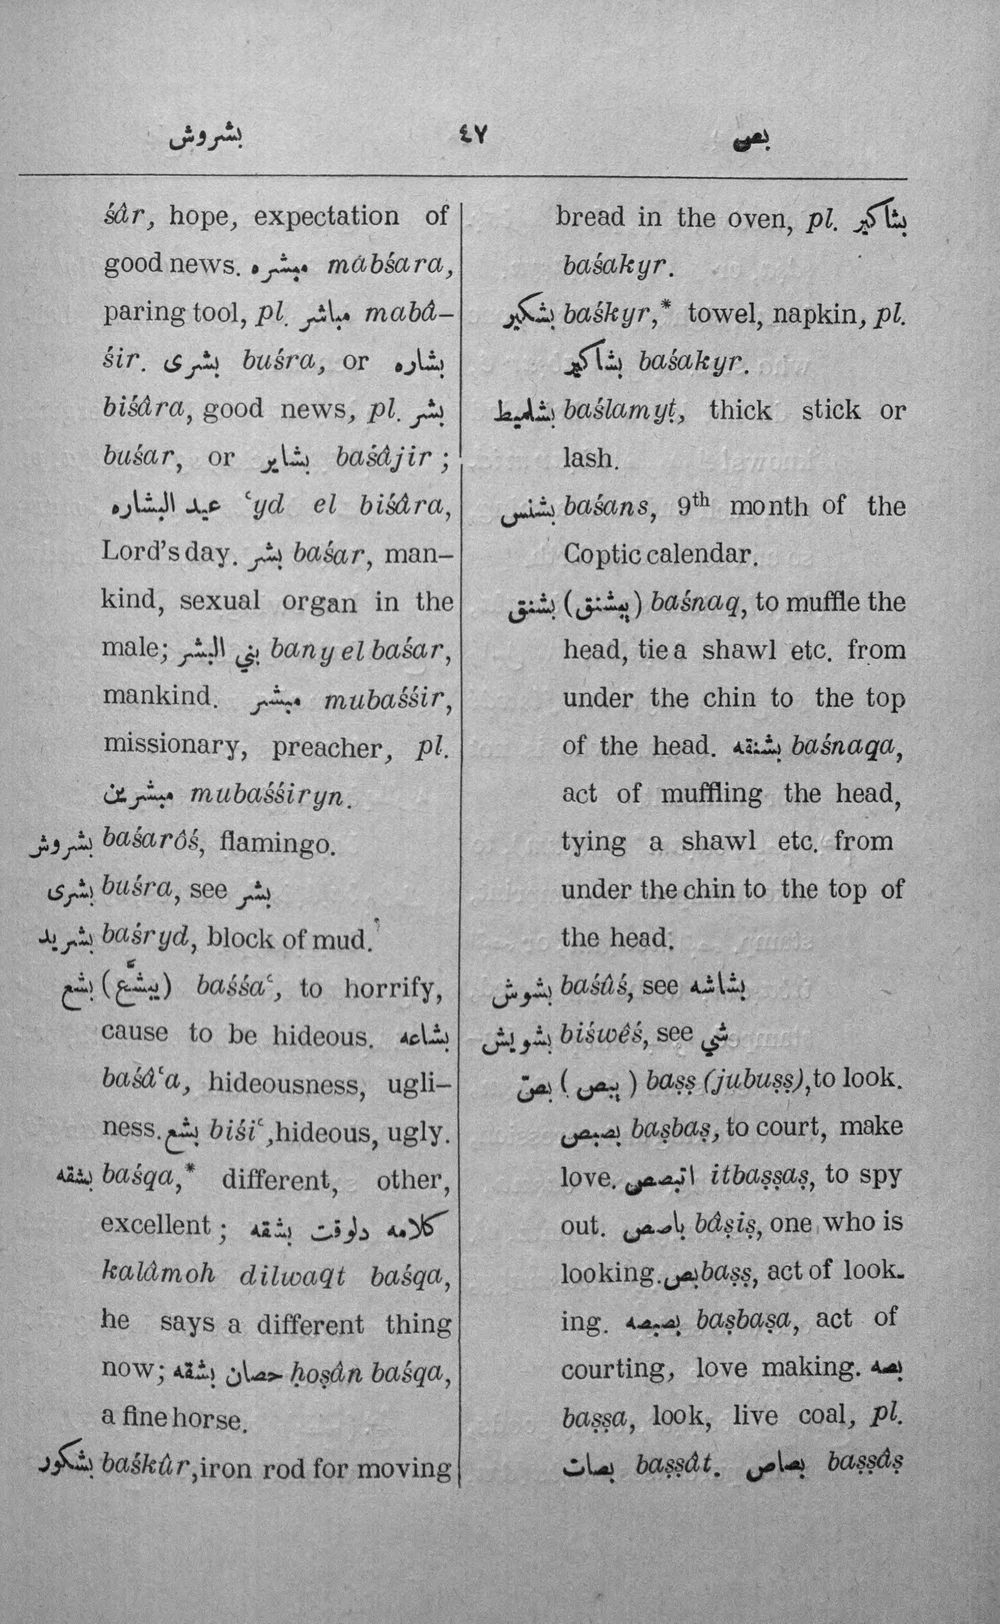 بشروش ٤٧ بص
śâr, hope, expectation of
good news. مبشره mabśara,
paring tool, pl. مباشر mabâ–
śir. بشرى buśra, or بشاره
biśâra, good news, pl. بشر
buśar, or بشاير baśâjir ;
عيد البشاره ‘yd el biśâra,
Lord’s day. بشر baśar, man–
kind, sexual organ in the
male; بني البشر bany el baśar,
mankind. مبشر mubaśśir,
missionary, preacher, pl.
مبشرين mubaśśiryn.
بشروش baśarôś, flamingo.
بشرى buśra, see بشر
بشريد baśryd, block of mud.
بشع (يبشّع) baśśa‘, to horrify,
cause to be hideous. بشاعه
baśâ‘a, hideousness, ugli–
ness. بشع biśi‘, hideous, ugly.
بشقه baśqa,* different, other,
excellent ; كلامه دلوقت بشقه
kalâmoh dilwaqt baśqa,
he says a different thing
now; حصان بشقه ḥoṣân baśqa,
a fine horse.
بشكور baśkûr, iron rod for moving
bread in the oven, pl. بشاكير
baśakyr.
بشكير baśkyr,* towel, napkin, pl.
بشاكير baśakyr.
بشلميط baślamyṭ, thick stick or
lash.
بشنس baśans, 9th month of the
Coptic calendar.
بشنق (يبشنق) baśnaq, to muffle the
head, tie a shawl etc. from
under the chin to the top
of the head. بشنقه baśnaqa,
act of muffling the head,
tying a shawl etc. from
under the chin to the top of
the head.
بشوش baśûś, see بشاشه
بشويش biśwêś, see شي
بصّ (يبص) baṣṣ (jubuṣṣ), to look.
بصبص baṣbaṣ, to court, make
love. اتبصص itbaṣṣaṣ, to spy
out. باصص bâṣiṣ, one who is
looking. بص baṣṣ, act of look-
ing. بصبصه baṣbaṣa, act of
courting, love making. بصه
baṣṣa, look, live coal, pl.
بصات baṣṣât. بصاص baṣṣâṣ